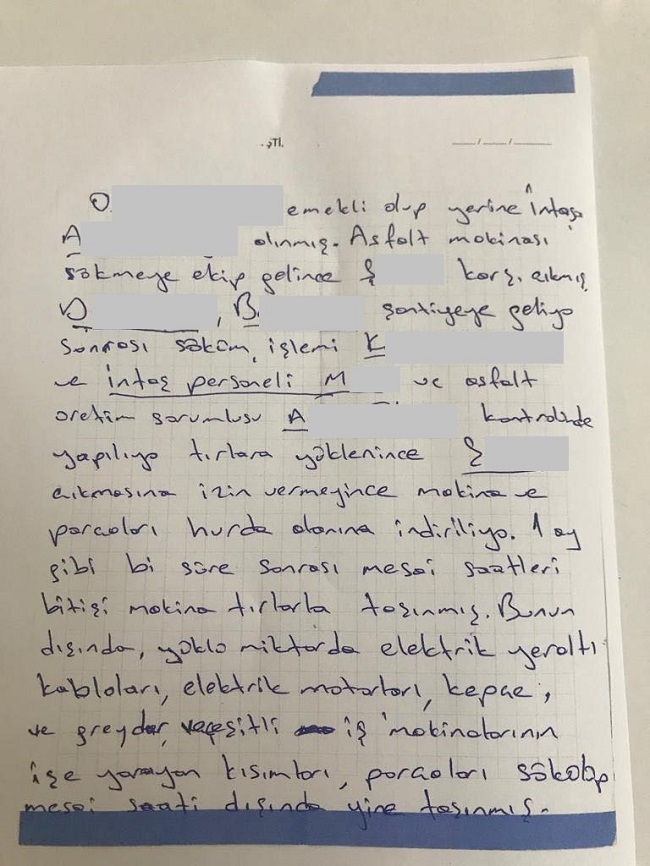 . ŞTİ.
O emekli olup yerine İntaşa
A alınmış. Asfalt makinası
sökmeye ekip gelince Ş karşı çıkmış
D , B şantiyeye geliyo
Sonrası söküm, işlemi K
ve İntaş personeli M ve asfalt
üretim sorumlusu A kontrolünde
yapılıyo tırlara yüklenince Ş
çıkmasına izin vermeyince makina ve
parçaları hurda alanına indiriliyo. 1 ay
gibi bi süre sonrası mesai saatleri
bitişi makina tırlarla taşınmış. Bunun
dışında, yüklü miktarda elektrik yeraltı
kabloları, elektrik motorları, kepçe,
ve greyder, ve çeşitli iş makinalarının
işe yarayan kısımları, parçaları sökülüp
mesai saati dışında yine taşınmış.